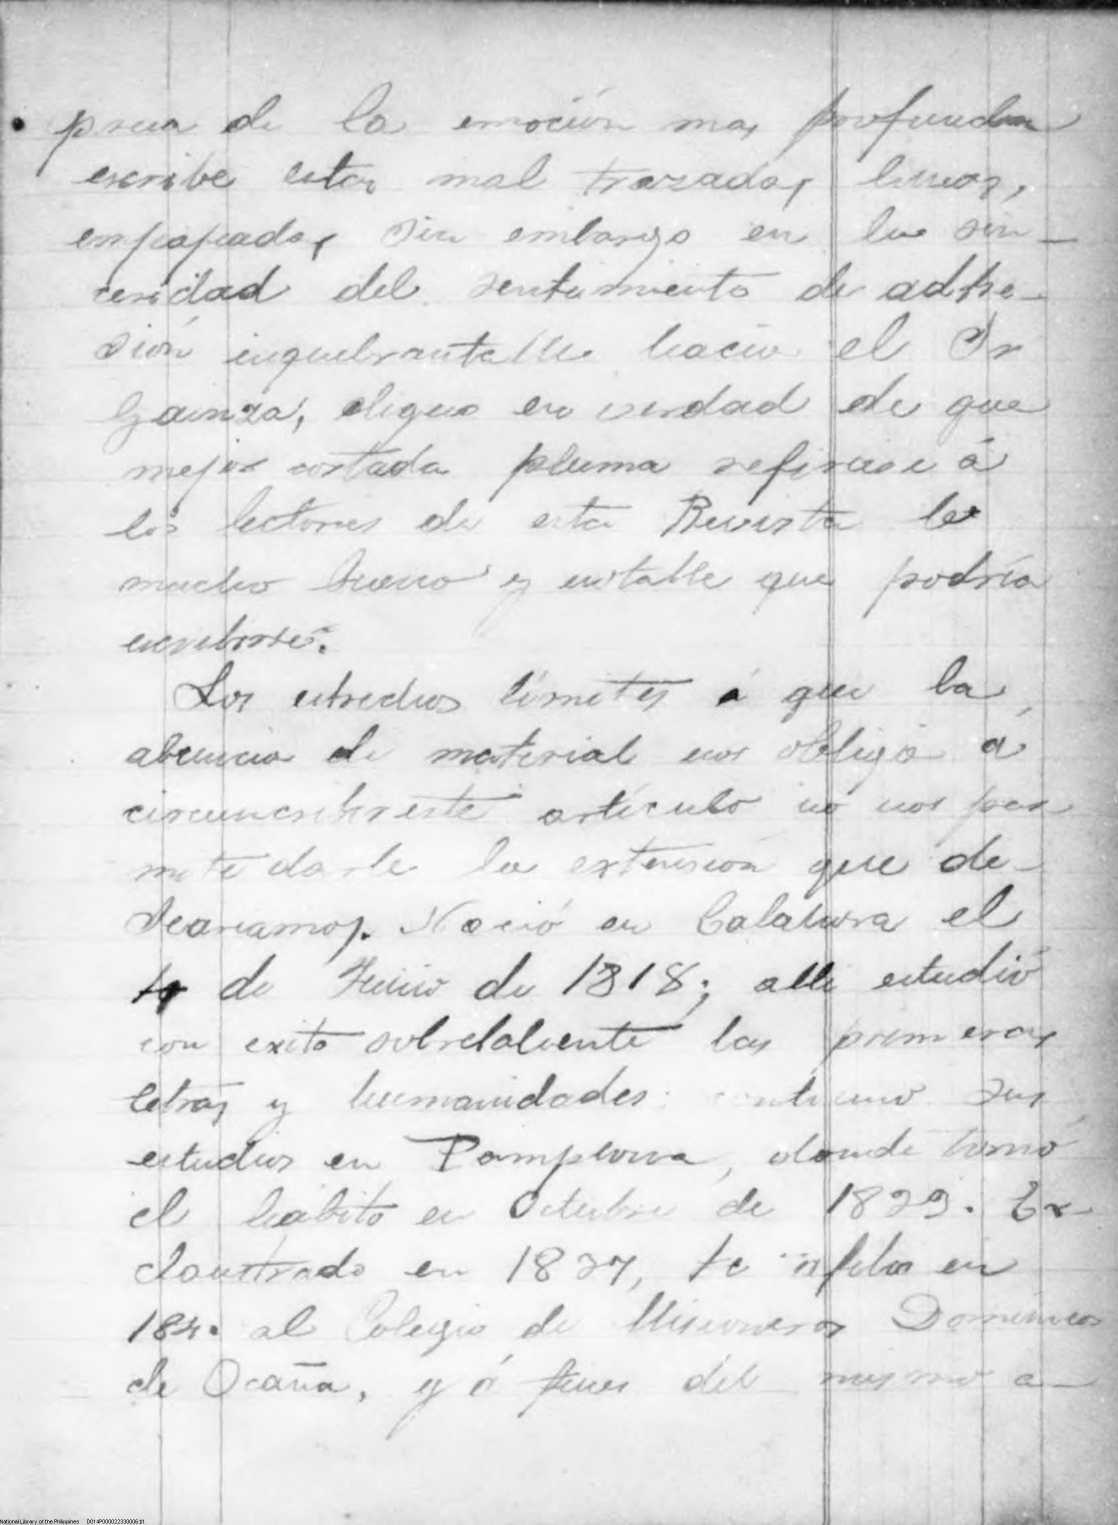 presa de la emoción mas profunda
escribe estas mal trazadas lineas,
empapadas sin embargo en la sin-
ceridad del sentimiento de adhe-
sión inquebrantable hacia el Sr
Gainza, digno en verdad de que
mejor cortada pluma refiriese á
los lectores de esta Revista lo
mucho bueno y notable que podría
escribirse.
Los estrechos límites á que la
abuncia de material nos obliga á
circunscribir este artículo no nos per
mite darle la extensión que de-
seariamos. Nació en Calahorra el
4 de Junio de 1818; alli estudió
con exito sobresaliente las primeras
letras y humanidades: continuó sus
estudios en Pamplona, donde tomó
el habito en Octubre de 1833. Ex-
claustrado en 1837, se afilió en
184. al Colegio de Misioneros Dominicos
de Ocaña, y á fines del mismo a-
National Library of the Philippines